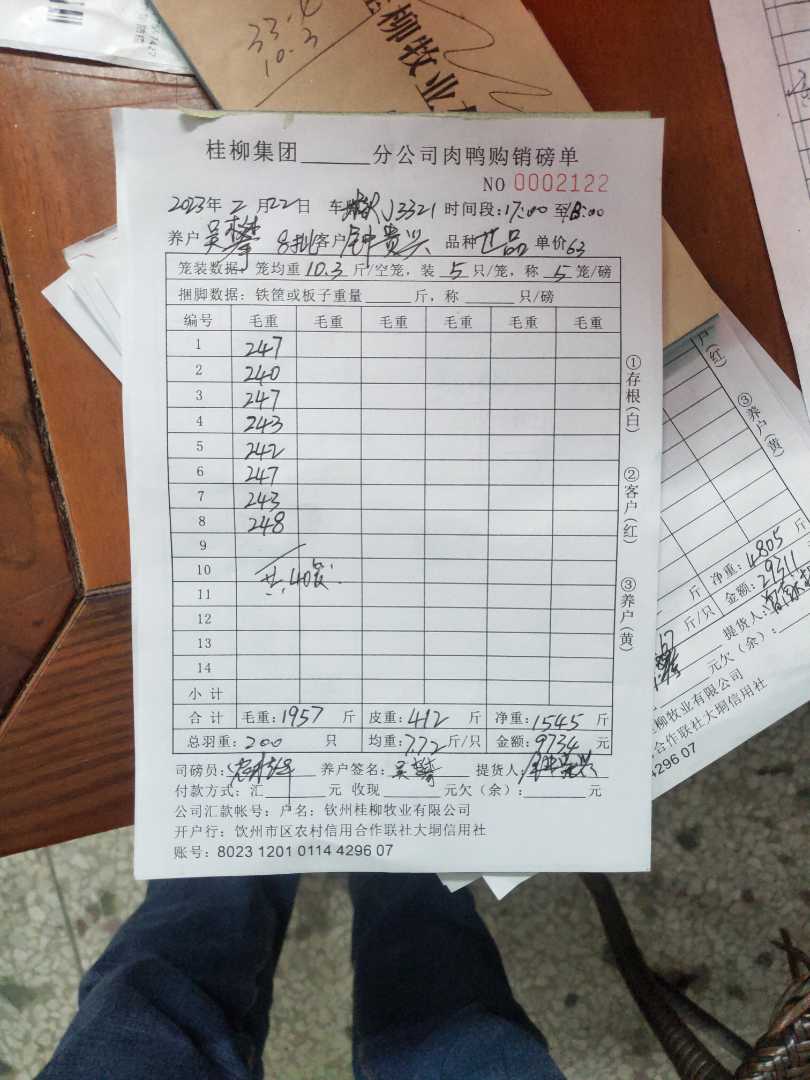 33.4
10.3
柳牧业
桂柳集团______分公司肉鸭购销磅单
NO 0002122
2023年2月22日 车 J3321 时间段:17:00至18:00
养户 吴攀 8批 客户 钟贵兴 品种 世品 单价 63
笼装数据: 笼均重 10.3 斤/空笼,装 5 只/笼,称 5 笼/磅
捆脚数据: 铁筐或板子重量______斤,称______只/磅
编号 毛重 毛重 毛重 毛重 毛重 毛重
1 247
2 240
3 247
4 243
5 242
6 247
7 243
8 248
9
10 共:40笼
11
12
13
14
小计
合计 毛重:1957 斤 皮重:412 斤 净重:1545 斤
总羽重:200 只 均重:7.72 斤/只 金额:9734 元
司磅员: 养户签名:吴攀 提货人:钟贵兴
付款方式:汇______元 收现______元欠(余):______元
公司汇款帐号:户名:钦州桂柳牧业有限公司
开户行:饮州市区农村信用合作联社大垌信用社
账号:8023 1201 0114 4296 07
①存根(白)
②客户(红)
③养户(黄)
户(红)
③养户(黄)
斤 净重:4805 斤
斤/只 金额:29311
提货人:
元欠(余):
桂柳牧业有限公司
合作联社大垌信用社
4296 07